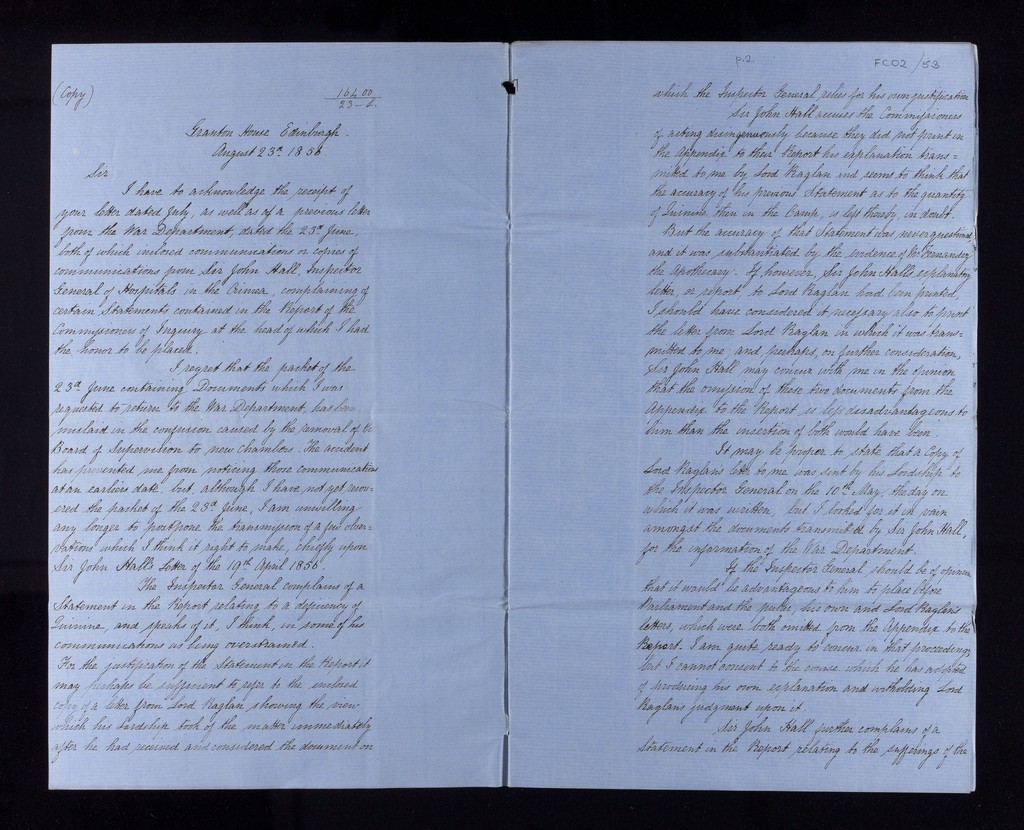 (Copy)
16400
23-L.
Granton House Edinburgh.
August 23d. 1856
Sir
I have to acknowledge the receipt of
your letter dated July, as well as of a previous letter
from the War Department, dated the 23d. June,
both of which inclosed communications or copies of
communications from Sir John Hall, Inspector
General of Hospitals in the Crimea, complaining of
certain Statements contained in the Report of the
Commissioners of Inquiry at the head of which I had
the honor to be placed.
I regret that the packet of the
23d June containing Documents which I was
requested to return to the War Department, has been
mislaid in the confusion caused by the removal of the
Board of Supervision to new Chambers. The accident
has prevented me from noticing those communications
at an earlier date. but, although I have not yet recov-
ered the packet of the 23d June, I am unwilling
any longer to postpone the transmission of a few obser=
vations which I think it right to make, chiefly upon
Sir John Hall's letter of the 19th April 1856.
The Inspector General complains of a
Statement in the Report relating to a deficiency of
Quinine, and speaks of it, I think, in some of his
communications as being overstrained.
For the justification of the Statement in the Report it
may perhaps be sufficient to refer to the inclosed
copy of a letter from Lord Raglan, showing the view
which his Lordship took of the matter immediately
after he had received and considered the document on
p.2.
FC02/53
which the Inspector General relies for his own justification
Sir John Hall accuses the Commissioners
of acting disingenuously because they did not print in
the Appendix to their Report his explanation trans=
mitted to me by Lord Raglan and seems to think that
the accuracy of his previous Statement as to the quantity
of Quinine then in the Camp, is left thereby, in doubt.
But the accuracy of that Statement was never questioned,
and it was substantiated by the evidence of Mr Fernandez
the Apothecary. If however, Sir John Hall's explanatory
letter, or report, to Lord Raglan had been printed,
I should have considered it necessary also to print
the letter from Lord Raglan in which it was trans=
mitted to me, and perhaps, on further consideration,
Sir John Hall may concur with me in the opinion
that the omission of these two documents from the
Appendix to the Report, is less disadvantageous to
him than the insertion of both would have been.
It may be proper to state that a Copy of
Lord Raglan's letter to me was sent by his Lordship to
the Inspector General on the 10th. May, the day on
which it was written, but I looked for it in vain
amongst the documents transmitted by Sir John Hall,
for the information of the War Department.
If the Inspector General, should be of opinion
that it would be advantageous to him to place before
Parliament and the public, his own and Lord Raglan's
letters, which were both omitted from the Appendix to the
Report. I am quite ready to concur in that proceeding,
but I cannot consent to the course which he has adopted
of producing his own explanation and witholding Lord
Raglan's judgment upon it.
Sir John Hall further complains of a
Statement in the Report relating to the sufferings of the